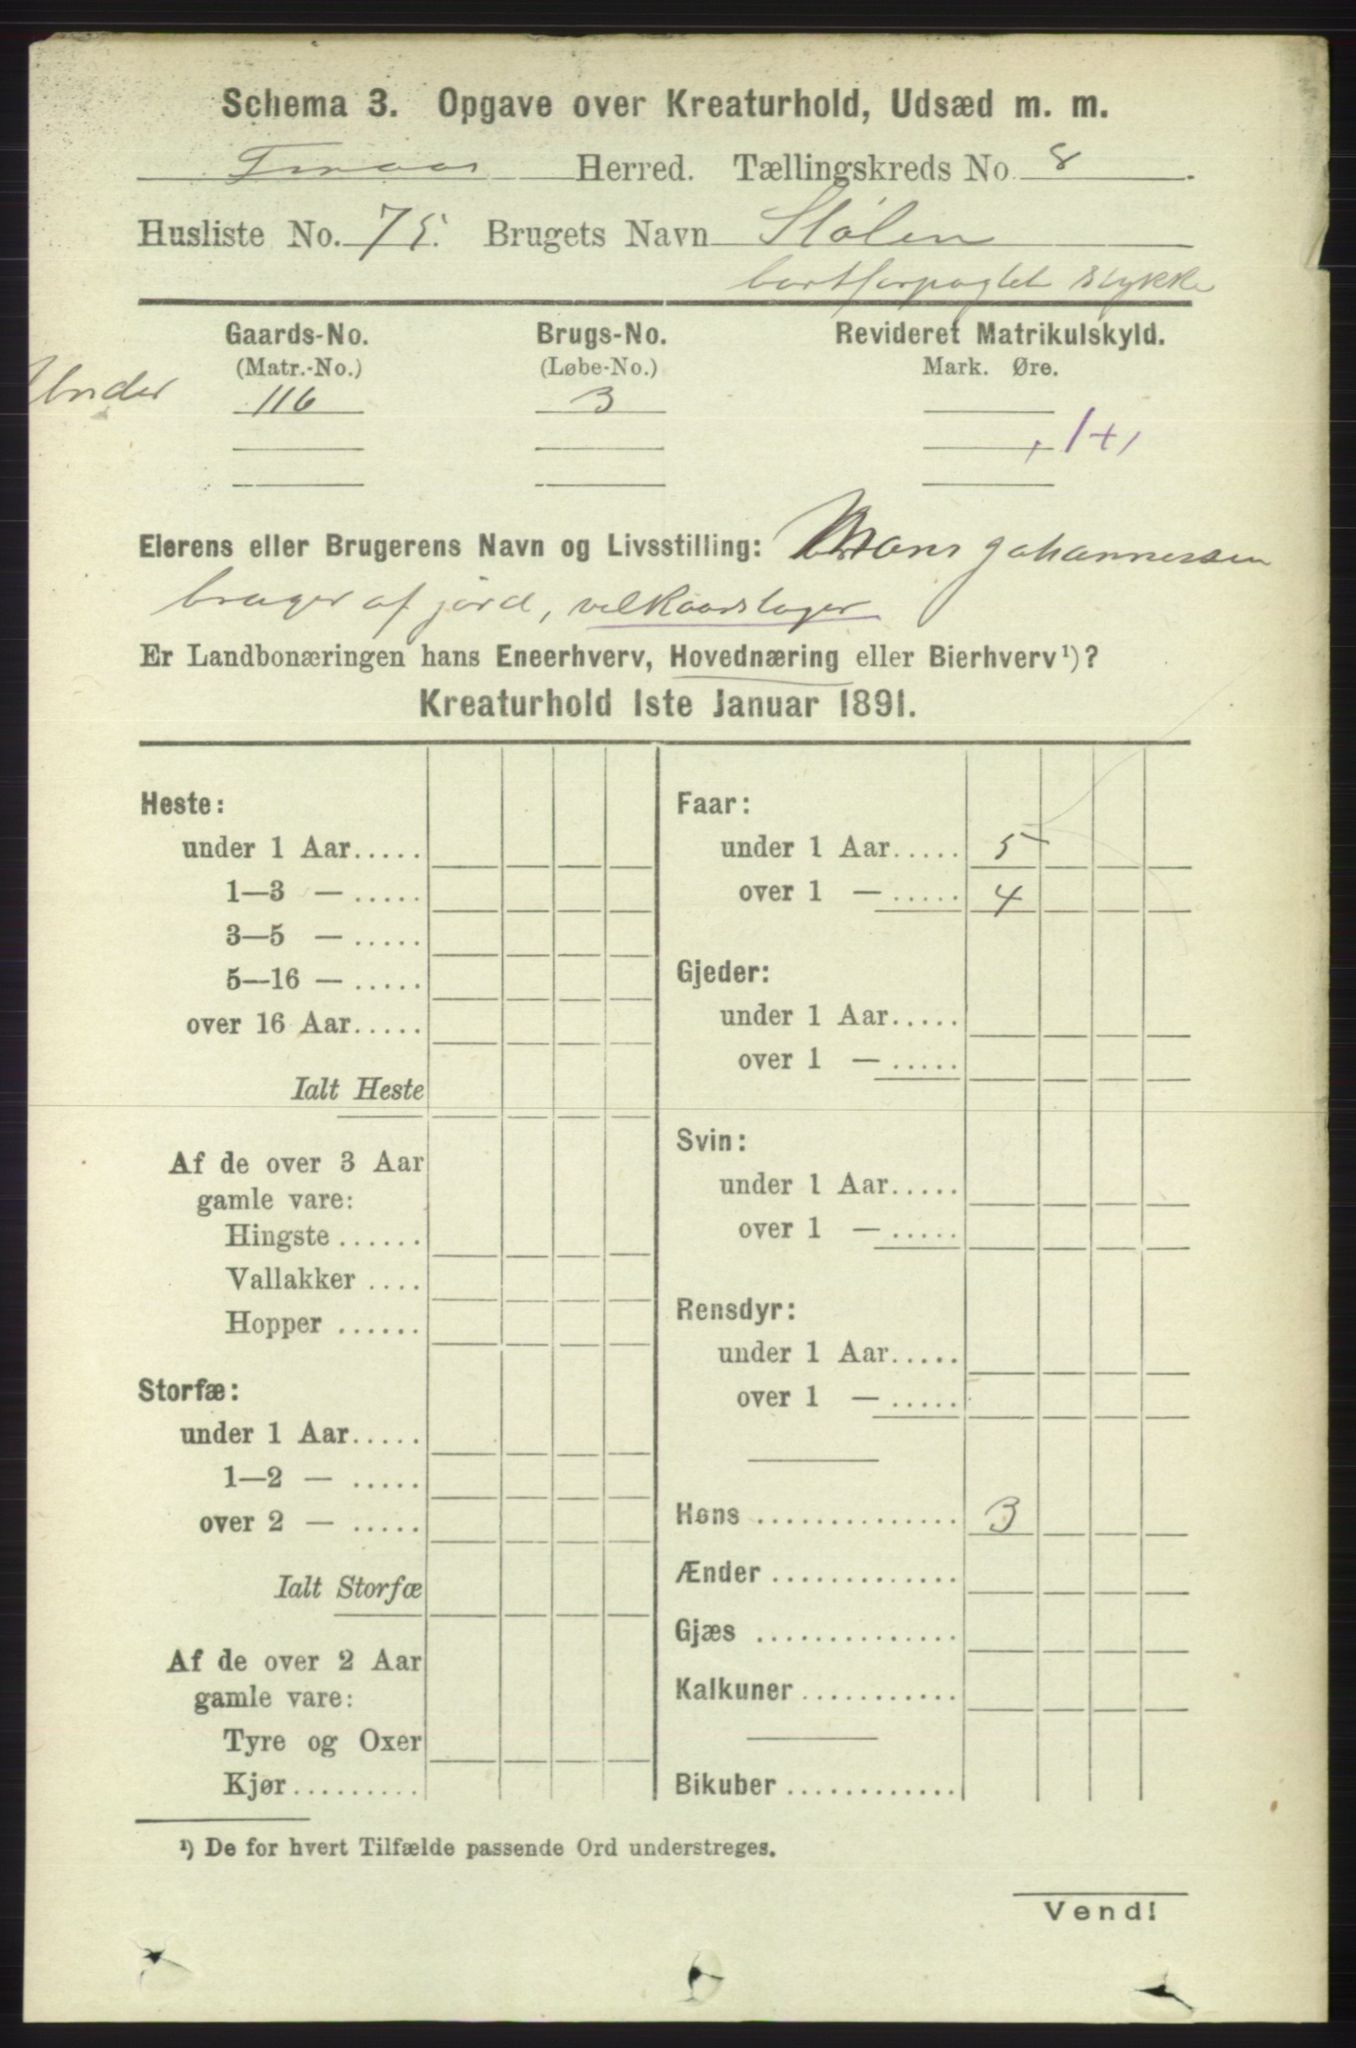 Schema 3. Opgave over Kreaturhold, Udsæd m. m.
Finaas Herred. Tællingskreds No. 8.
Husliste No. 75. Brugets Navn Stølen
bortforpagtet stykke
Gaards-No. Brugs-No. Revideret Matrikulskyld.
(Matr.-No.) (Løbe-No.) Mark. Øre.
Under 116 3
Eierens eller Brugerens Navn og Livsstilling: Mons Johannessen
bruger af jord, velkaarstager
Er Landbonæringen hans Eneerhverv, Hovednæring eller Bierhverv¹)?
Kreaturhold 1ste Januar 1891.
Heste:
under 1 Aar.....
1—3 — .....
3—5 — .....
5—16 — .....
over 16 Aar.....
Ialt Heste
Af de over 3 Aar
gamle vare:
Hingste ......
Vallakker ....
Hopper ......
Storfæ:
under 1 Aar.....
1—2 — .....
over 2 — .....
Ialt Storfæ
Af de over 2 Aar
gamle vare:
Tyre og Oxer
Kjør.........
Faar:
under 1 Aar..... 5
over 1 — ..... 4
Gjeder:
under 1 Aar.....
over 1 — .....
Svin:
under 1 Aar.....
over 1 — .....
Rensdyr:
under 1 Aar.....
over 1 — .....
Høns .............. 3
Ænder .............
Gjæs ..............
Kalkuner...........
Bikuber ............
¹) De for hvert Tilfælde passende Ord understreges.
Vend!